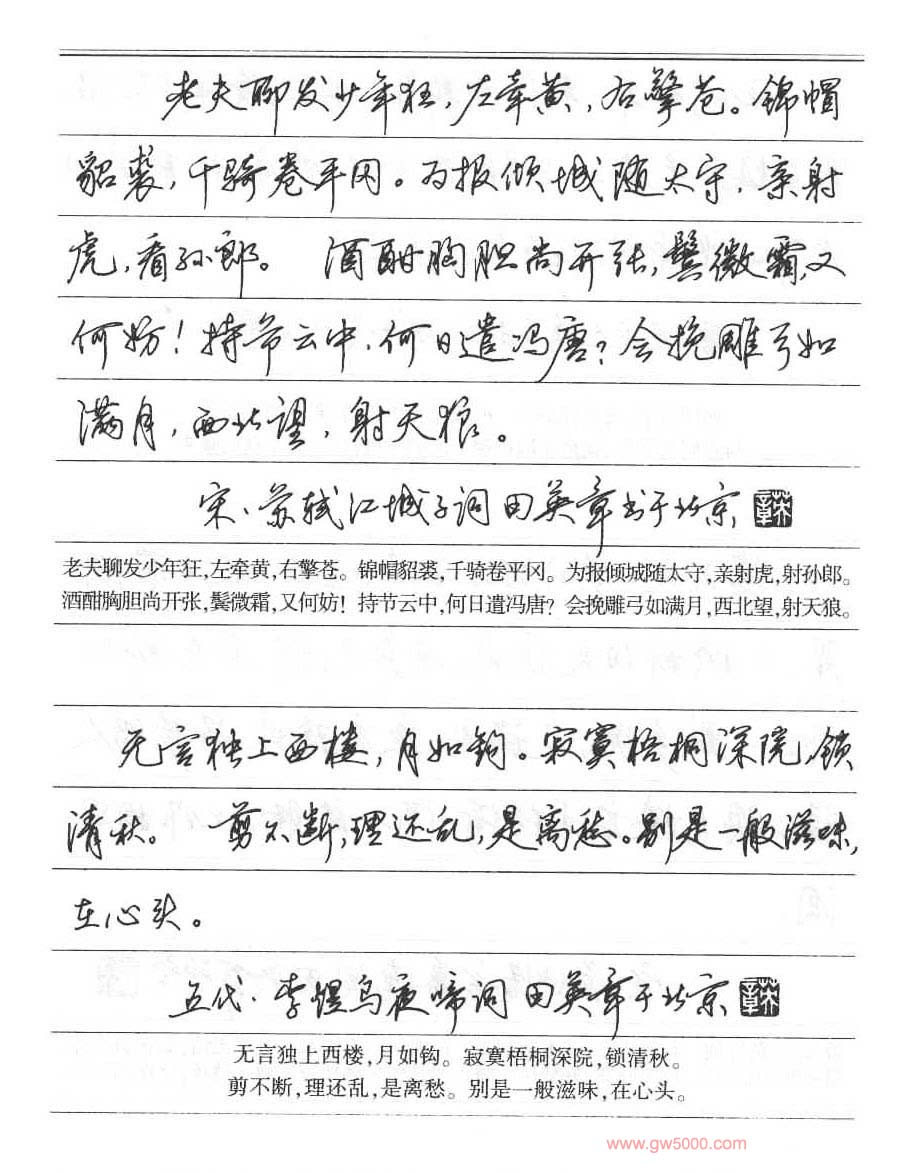 老夫聊发少年狂,左牵黄,右擎苍。锦帽
貂裘,千骑卷平冈。为报倾城随太守,亲射
虎,看孙郎。 酒酣胸胆尚开张,鬓微霜,又
何妨!持节云中,何日遣冯唐?会挽雕弓如
满月,西北望,射天狼。
宋、苏轼江城子词 田英章书于北京
老夫聊发少年狂,左牵黄,右擎苍。锦帽貂裘,千骑卷平冈。为报倾城随太守,亲射虎,射孙郎。
酒酣胸胆尚开张,鬓微霜,又何妨!持节云中,何日遣冯唐?会挽雕弓如满月,西北望,射天狼。
无言独上西楼,月如钩。寂寞梧桐深院,锁
清秋。 剪不断,理还乱,是离愁。别是一般滋味,
在心头。
五代、李煜乌夜啼词 田英章于北京
无言独上西楼,月如钩。寂寞梧桐深院,锁清秋。
剪不断,理还乱,是离愁。别是一般滋味,在心头。
www.gw5000.com